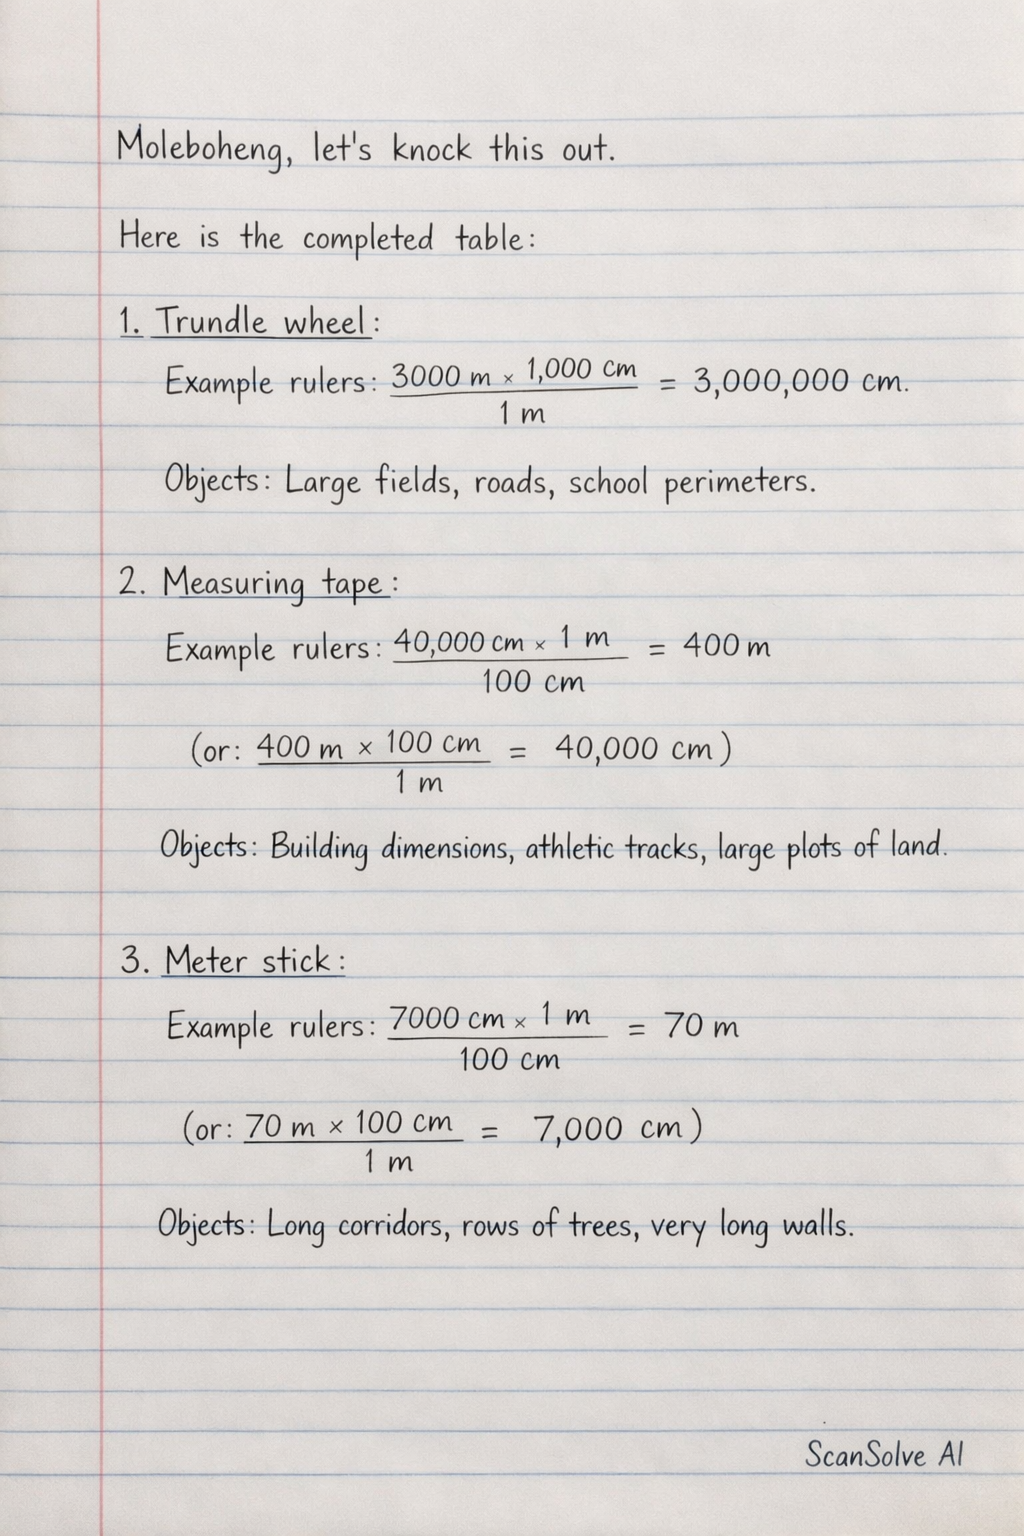 Moleboheng, let's knock this out.
Here is the completed table:
1. Trundle wheel:
Example rulers: 3000 m × 1,000 cm / 1 m = 3,000,000 cm.
Objects: Large fields, roads, school perimeters.
2. Measuring tape:
Example rulers: 40,000 cm × 1 m / 100 cm = 400 m
(or: 400 m × 100 cm / 1 m = 40,000 cm)
Objects: Building dimensions, athletic tracks, large plots of land.
3. Meter stick:
Example rulers: 7000 cm × 1 m / 100 cm = 70 m
(or: 70 m × 100 cm / 1 m = 7,000 cm)
Objects: Long corridors, rows of trees, very long walls.
ScanSolve AI